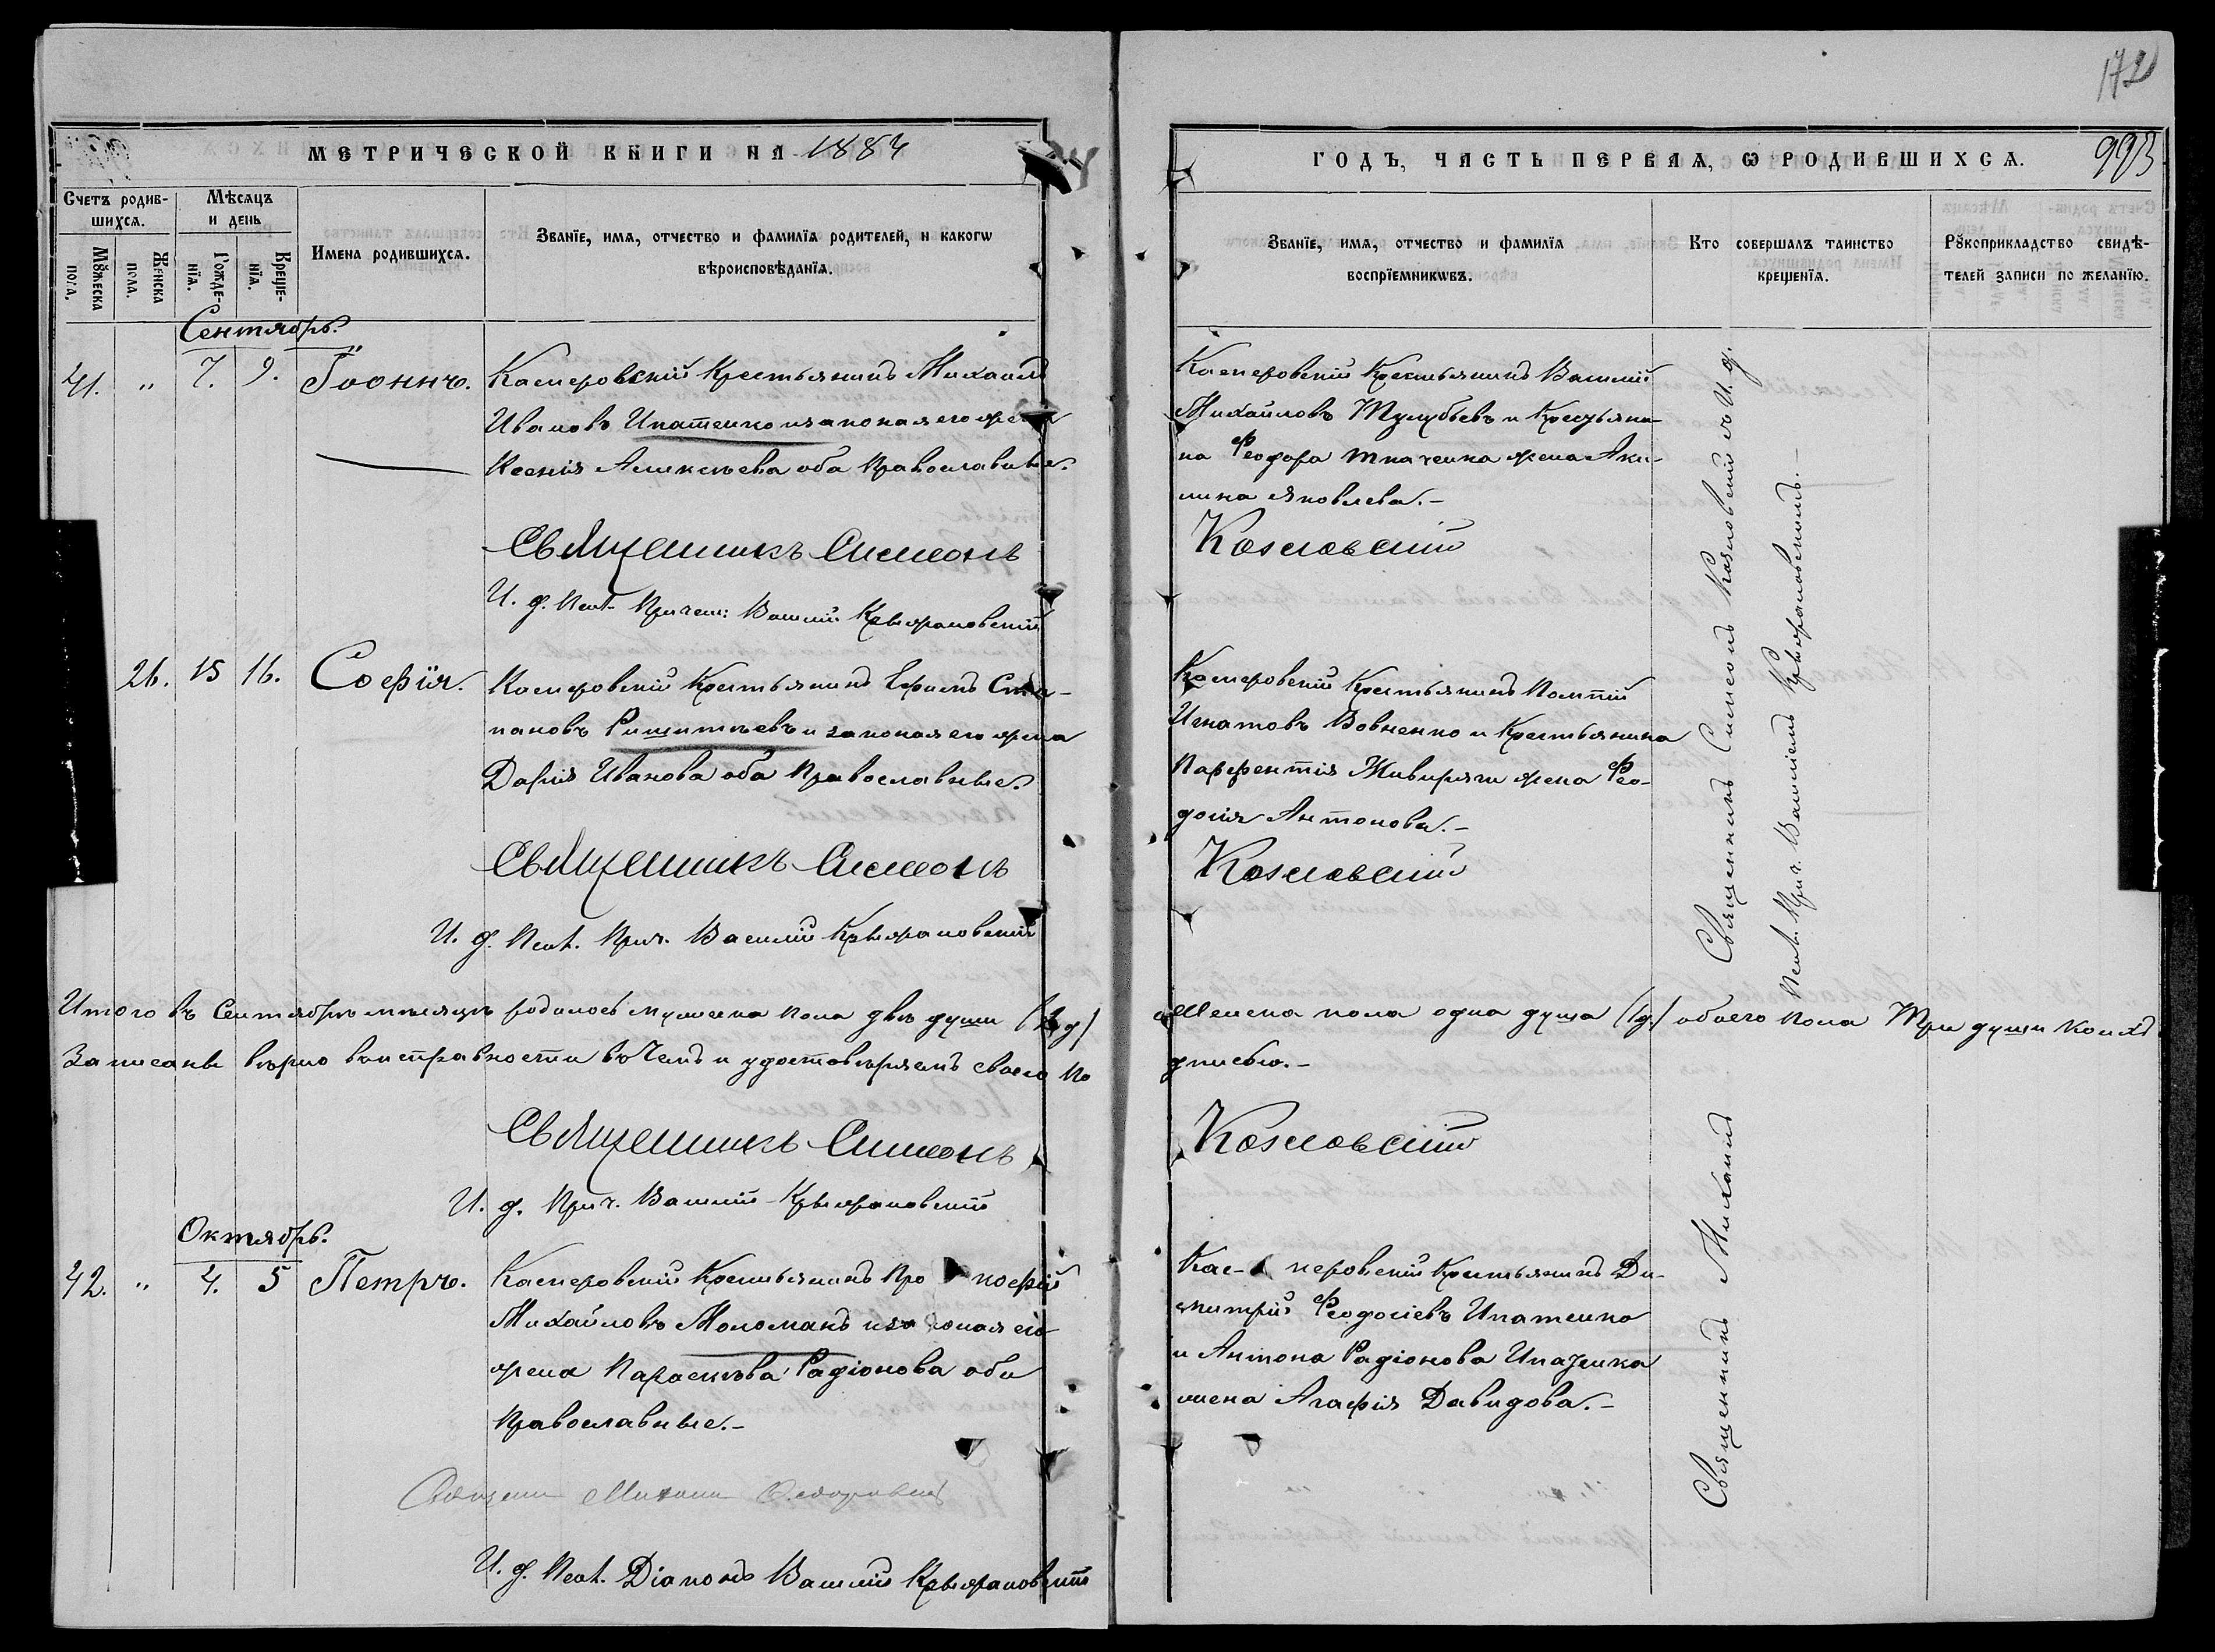 172
МЕТРИЧЕСКОЙ КНИГИ НА 1884
ГОДЪ, ЧАСТЬ ПЕРВАЯ, Ѡ РОДИВШИХСѦ.
993
Счетъ родив-
шихсѧ.
Мѣсѧцъ
и день
Мꙋжеска
пола.
Женска
пола.
Рожде-
нїѧ.
Креще-
нїѧ.
Имена родившихсѧ.
Званїе, имѧ, отчество и фамилїѧ родителей, и какогѡ
вѣроисповѣданїѧ.
Званїе, имѧ, отчество и фамилїѧ
воспрїемникѡвъ.
Кто совершалъ таинство
крещенїѧ.
Рꙋкоприкладство свидѣ-
телей записи по желанїю.
Сентябрь.
41. " 7. 9. Іоаннъ.
Касперовскій Крестьянинъ Михаилъ
Ивановъ Ипатенко и законая его жена
Ксенія Алексѣева оба Православные.
Священникъ Симеонъ
И. д. Псал. Причет: Василій Крыжановскій
Касперовскій Крестьянинъ Василій
Михайловъ Тулубьевъ и Крестьяни-
на Феодора Ткаченка жена Аки-
лина Яковлева.-
Козловскій
26. 15 16. Софія.
Касперовскій Крестьянинъ Ефимъ Сте-
пановъ и законая его жена
Дарія Иванова оба Православные.
Священникъ Симеонъ
И. д. Псал. Прич. Василій Крыжановскій
Касперовскій Крестьянинъ
Игнатовъ Вовненко и Крестьянина
Парфентія жена Фео-
досія Антонова.-
Козловскій
Священникъ Симеонъ Козловскій и И. д.
Псал. Прич. Василіемъ Крыжановскимъ.-
Итого въ Сентябрѣ мѣсяцѣ родилось мужеска пола двѣ души женска пола одна душа (1д.) обоего пола Три души коихъ
Записаны вѣрно въ чемъ и удостовѣряемъ своею по
дписью.-
Священникъ Симеонъ
Козловскій
И. д. Прич. Василій Крыжановскій
Октябрь.
42. " 4. 5 Петръ.
Касперовскій Крестьянинъ Прокофій
Михайловъ Моломанъ и законая его
жена Параскева Радіонова оба
Православные.-
Священ Михаил
И. д. Псал. Діаконъ Василій Крыжановскій
Касперовскій Крестьянинъ Ди-
митрій Феодосіевъ Ипатенко
и Антона Радіонова Ипатенка
жена Агафія Давидова.-
Священникъ Михаилъ